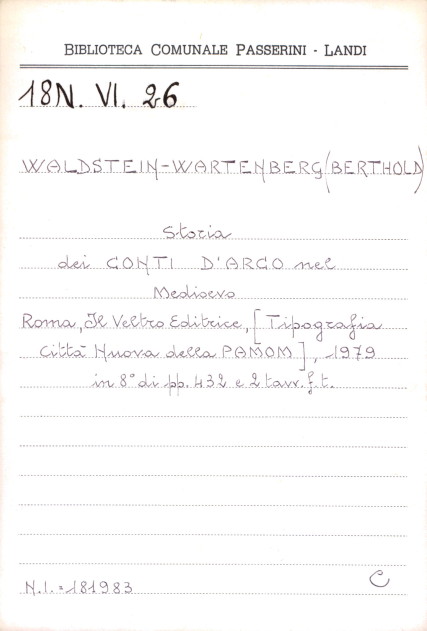 BIBLIOTECA COMUNALE PASSERINI - LANDI
18N. VI. 26
WALDSTEIN-WARTENBERG (BERTHOLD)
Storia
dei CONTI D'ARCO nel
Medioevo
Roma, Il Veltro Editrice, [Tipografia
Città Nuova della PAMOM], 1979
in 8° di pp. 432 e 2 tavv. f. t.
N.I. = 181983
C